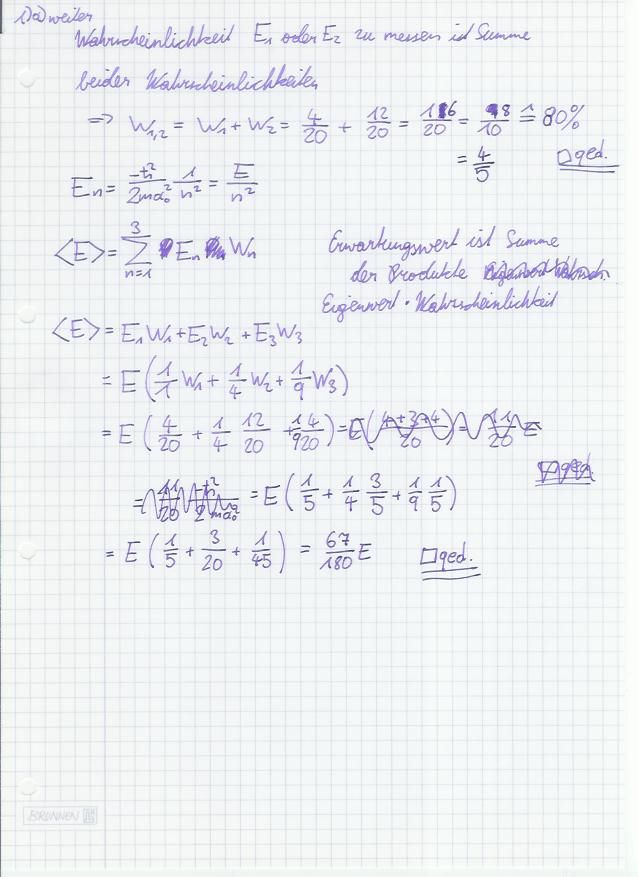 1) a) weiter
Wahrscheinlichkeit E₁ oder E₂ zu messen ist Summe
beider Wahrscheinlichkeiten
=> W₁,₂ = W₁ + W₂ = 4/20 + 12/20 = 16/20 = 8/10 ≙ 80%
= 4/5 □ qed.
Eₙ = -ħ²/2ma₀² 1/n² = E/n²
<E> = ∑ₙ₌₁³ Eₙ Wₙ
Erwartungswert ist Summe
der Produkte
Eigenwert · Wahrscheinlichkeit
<E> = E₁W₁ + E₂W₂ + E₃W₃
= E (1/1 W₁ + 1/4 W₂ + 1/9 W₃)
= E (4/20 + 1/4 12/20 + 1/9 4/20)
= E (1/5 + 1/4 3/5 + 1/9 1/5)
= E (1/5 + 3/20 + 1/45) = 67/180 E □ qed.
BRUNNEN